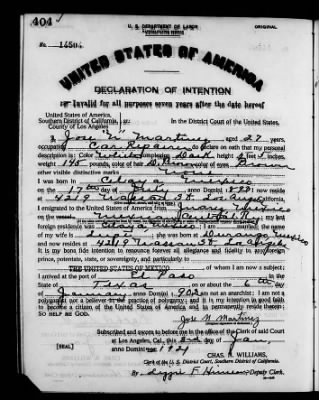 404
U. S. DEPARTMENT OF LABOR
ORIGINAL
No. 14504
UNITED STATES OF AMERICA
DECLARATION OF INTENTION
Invalid for all purposes seven years after the date hereof
United States of America,
Southern District of California, ss:
County of Los Angeles
In the District Court of the United States.
I, Jose N. Martinez, aged 27 years,
occupation Car Repairer, do declare on oath that my personal
description is: Color White, complexion Dark, height 5 feet inches,
weight 140 pounds, color of hair Brown, color of eyes Brown
other visible distinctive marks None
I was born in Mexico
on the 17th day of July, anno Domini 1893; I now reside
at 4219 St. Los Angeles
I emigrated to the United States of America from Mexico
on the Mexican Central Ry.; my last
foreign residence was Mexico. I am married, the name
of my wife is; she was born at Durango Mexico
and now resides at 4219 St. Los Angeles
It is my bona fide intention to renounce forever all allegiance and fidelity to any foreign
prince, potentate, state, or sovereignty, and particularly to
THE UNITED STATES OF MEXICO, of whom I am now a subject;
I arrived at the port of El Paso, in the
State of Texas, on or about the 6th day
of January, anno Domini 1902; I am not an anarchist; I am not a
polygamist nor a believer in the practice of polygamy; and it is my intention in good faith
to become a citizen of the United States of America and to permanently reside therein:
SO HELP ME GOD.
Jose N. Martinez
Subscribed and sworn to before me in the office of the Clerk of said Court
at Los Angeles, Cal., this 3rd day of Jan.,
[SEAL]
anno Domini 1921
CHAS. N. WILLIAMS,
Clerk of the U. S. District Court, Southern District of California.
By, Deputy Clerk.